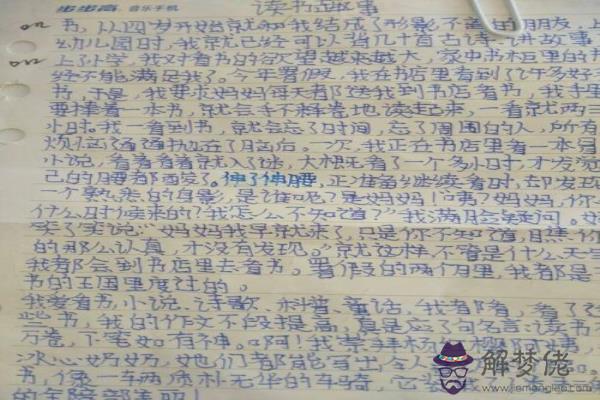 步步高 音乐手机
读书的故事
书,从四岁开始就和我结成了形影不离的朋友,上
幼儿园时,我就已经可以背几十首古诗,讲故事
上了小学,我对看书的欲望越来越大,家中书柜里的书
经不能满足我了。今年暑假,我在书店里看到了许多好
书,于是,我要求妈妈每天都送我到书店看书,我手里
要捧着一本书,就会手不释卷地读起来,一看就两三
小时。我一看到书,就会忘了时间,忘了周围的人,所有
烦恼通通抛在了脑后。一次,我正在书店里看一本
小说,看着看着就入了迷,大概看了一个多小时,才发觉
己的腰都酸了。伸了伸腰,正准备继续看时,却发现
一个熟悉的身影,是谁呢?是妈妈!"咦?妈妈,你
什么时候来的?我怎么不知道?"我满脸疑问。妈
笑了笑说:"妈妈我早就来了,只是你不知道,瞧你
的那么认真,才没有发现。"就这样,不管是什么天气
我都会到书店里去看书。暑假的两个月里,我都是
书的王国里度过的。
我爱看书,小说、诗歌、科普、童话,我都看,看了这
些书,我的作文不段提高,真是应了句名言:读书破
万卷,下笔如有神。啊!我崇拜杨红樱阿姨
冰心奶奶,她们都能写出令人
书,像一车两质朴无华的车骑,它载
解梦佬
www.jiemenglao.com